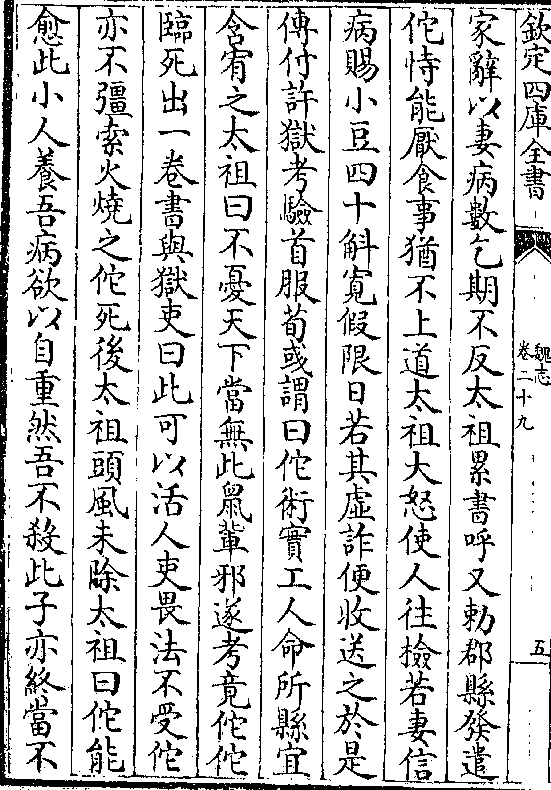 欽定四庫全書
魏志
卷二十九
五
家辭以妻病數乞期不反太祖累書呼又勅郡縣發遣
佗恃能厭食事猶不上道太祖大怒使人往檢若妻信
病賜小豆四十斛寬假限日若其虛詐便收送之於是
傳付許獄考驗首服荀彧謂曰佗術實工人命所縣宜
含宥之太祖曰不憂天下當無此鼠輩邪遂考竟佗佗
臨死出一卷書與獄吏曰此可以活人吏畏法不受佗
亦不彊索火燒之佗死後太祖頭風未除太祖曰佗能
愈此小人養吾病欲以自重然吾不殺此子亦終當不